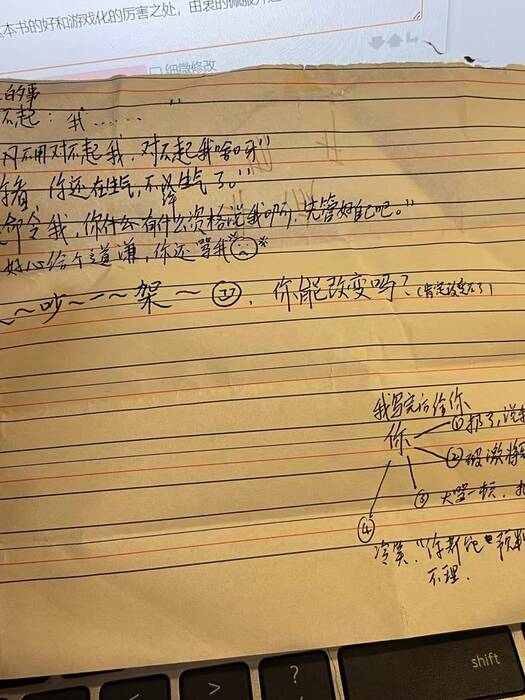 本书的好和游戏化的厉害之处，由衷的佩服
细微修改
的事
不起：我……"
用对不起我，对不起我啥呀"
着，你还在生气，不准生气了。"
命令我，你什么有什么资格说我呀，先管好自己吧。"
好心给个道谦，你还骂我
吵～一～架一 ㊲，你能改变吗？（肯定改变不了）
我写完后给你
你
① 扔了，说我
② 被激将
③ 大骂一顿，
④
冷笑："你
不理．
shift
?
/
>
.
<